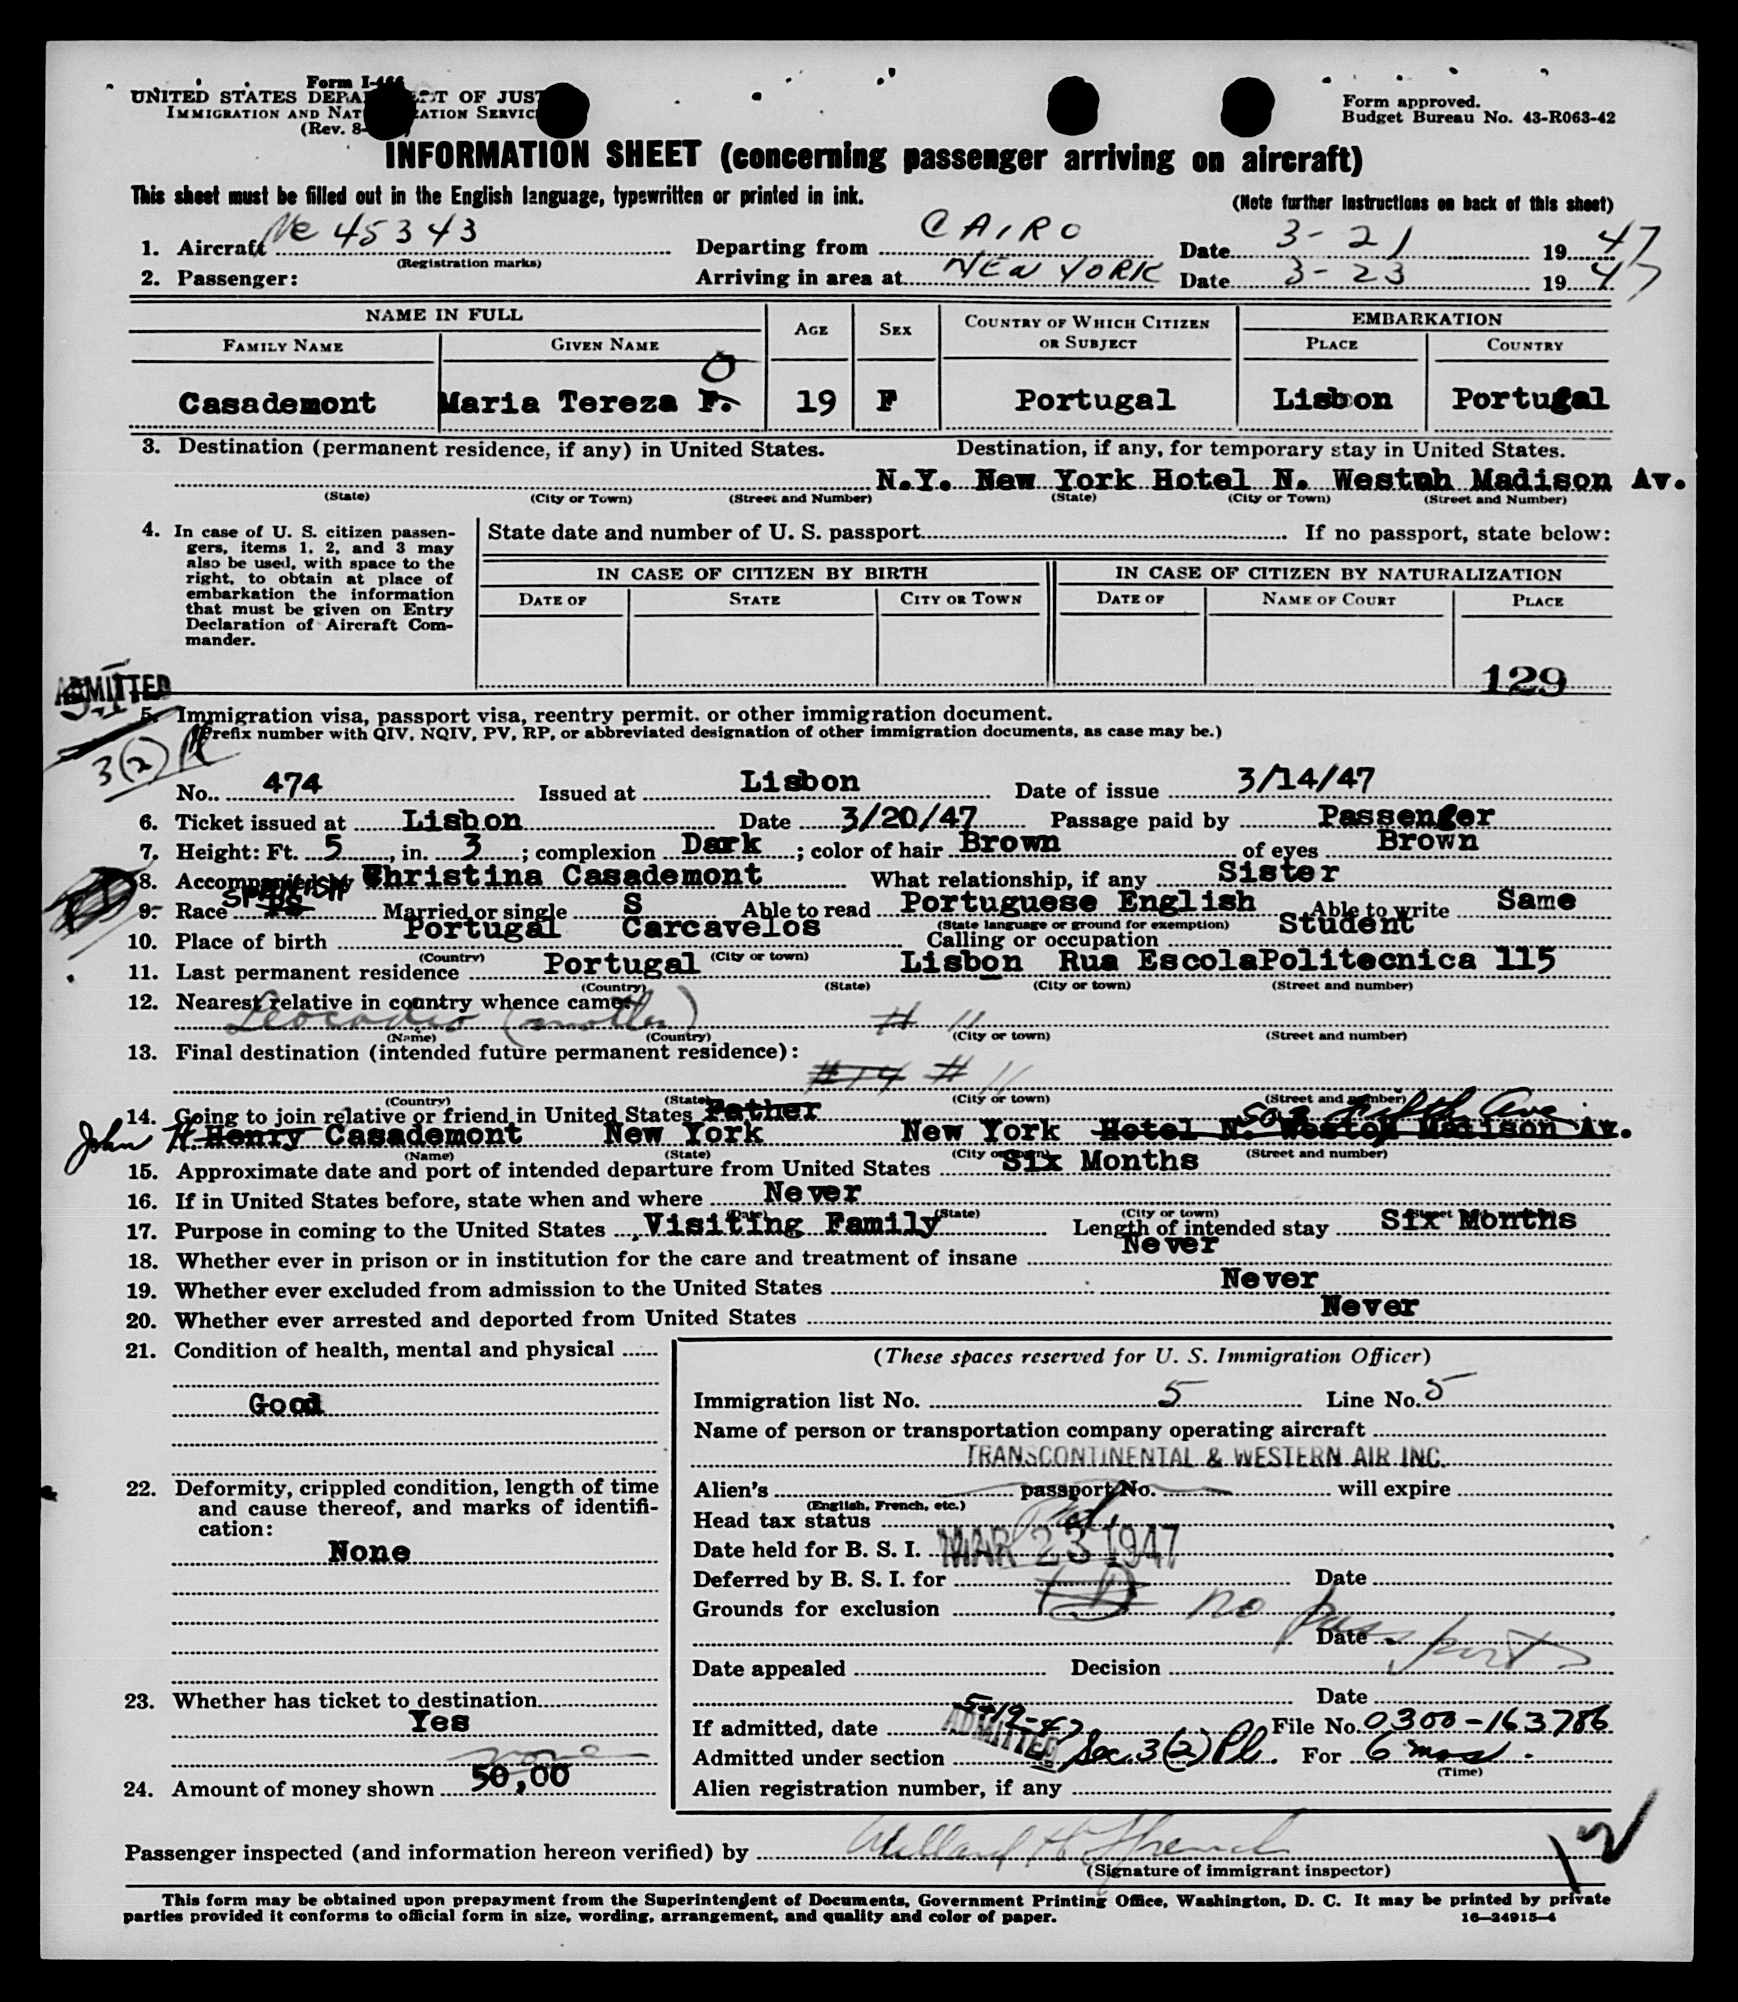 Form I-466
UNITED STATES DEPARTMENT OF JUSTICE
IMMIGRATION AND NATURALIZATION SERVICE
(Rev. 8-
Form approved.
Budget Bureau No. 43-R063-42
INFORMATION SHEET (concerning passenger arriving on aircraft)
This sheet must be filled out in the English language, typewritten or printed in ink.
(Note further instructions on back of this sheet)
1. Aircraft Nc 45343 Departing from CAIRO Date 3-21 1947
(Registration marks)
2. Passenger: Arriving in area at NEW YORK Date 3-23 1947
NAME IN FULL AGE SEX COUNTRY OF WHICH CITIZEN OR SUBJECT EMBARKATION
FAMILY NAME GIVEN NAME PLACE COUNTRY
O
Casademont Maria Tereza F. 19 F Portugal Lisbon Portugal
3. Destination (permanent residence, if any) in United States. Destination, if any, for temporary stay in United States.
N.Y. New York Hotel N. Westnh Madison Av.
(State) (City or Town) (Street and Number) (State) (City or Town) (Street and Number)
4. In case of U. S. citizen passen-
gers, items 1, 2, and 3 may
also be used, with space to the
right, to obtain at place of
embarkation the information
that must be given on Entry
Declaration of Aircraft Com-
mander.
State date and number of U. S. passport If no passport, state below:
IN CASE OF CITIZEN BY BIRTH IN CASE OF CITIZEN BY NATURALIZATION
DATE OF STATE CITY OR TOWN DATE OF NAME OF COURT PLACE
129
ADMITTED
5. Immigration visa, passport visa, reentry permit. or other immigration document.
(Prefix number with QIV, NQIV, PV, RP, or abbreviated designation of other immigration documents, as case may be.)
3(2) Pl
No. 474 Issued at Lisbon Date of issue 3/14/47
6. Ticket issued at Lisbon Date 3/20/47 Passage paid by Passenger
7. Height: Ft. 5, in. 3; complexion Dark; color of hair Brown of eyes Brown
8. Accompanied by Christina Casademont What relationship, if any Sister
9. Race SPANISH PS Married or single S Able to read Portuguese English Able to write Same
(State language or ground for exemption)
10. Place of birth Portugal Carcavelos Calling or occupation Student
(Country) (City or town)
11. Last permanent residence Portugal Lisbon Rua EscolaPolitecnica 115
(Country) (State) (City or town) (Street and number)
12. Nearest relative in country whence came:
Leocadia (mother) # 11
(Name) (Country) (City or town) (Street and number)
13. Final destination (intended future permanent residence):
#14 # 11
(Country) (State) (City or town) (Street and number)
14. Going to join relative or friend in United States Father 503 Fifth Ave
John H. Henry Casademont New York New York Hotel N. Weston Madison Av.
(Name) (State) (City or town) (Street and number)
15. Approximate date and port of intended departure from United States Six Months
16. If in United States before, state when and where Never
(Date) (State) (City or town) (Street and number)
17. Purpose in coming to the United States Visiting Family Length of intended stay Six Months
18. Whether ever in prison or in institution for the care and treatment of insane Never
19. Whether ever excluded from admission to the United States Never
20. Whether ever arrested and deported from United States Never
21. Condition of health, mental and physical
Good
22. Deformity, crippled condition, length of time
and cause thereof, and marks of identifi-
cation:
None
23. Whether has ticket to destination
Yes
none
24. Amount of money shown 50,00
(These spaces reserved for U. S. Immigration Officer)
Immigration list No. 5 Line No. 5
Name of person or transportation company operating aircraft
TRANSCONTINENTAL & WESTERN AIR INC.
Alien's passport No. will expire
(English, French, etc.)
Head tax status Pd.
Date held for B. S. I. MAR 23 1947
Deferred by B. S. I. for Date
Grounds for exclusion no passport
Date
Date appealed Decision
Date
If admitted, date 5-19-47 File No. 0300-163786
ADMITTED
Admitted under section Sec. 3(2) Pl. For 6 mos.
(Time)
Alien registration number, if any
Passenger inspected (and information hereon verified) by Willard H. French
(Signature of immigrant inspector)
12
This form may be obtained upon prepayment from the Superintendent of Documents, Government Printing Office, Washington, D. C. It may be printed by private
parties provided it conforms to official form in size, wording, arrangement, and quality and color of paper.
16—24915-4